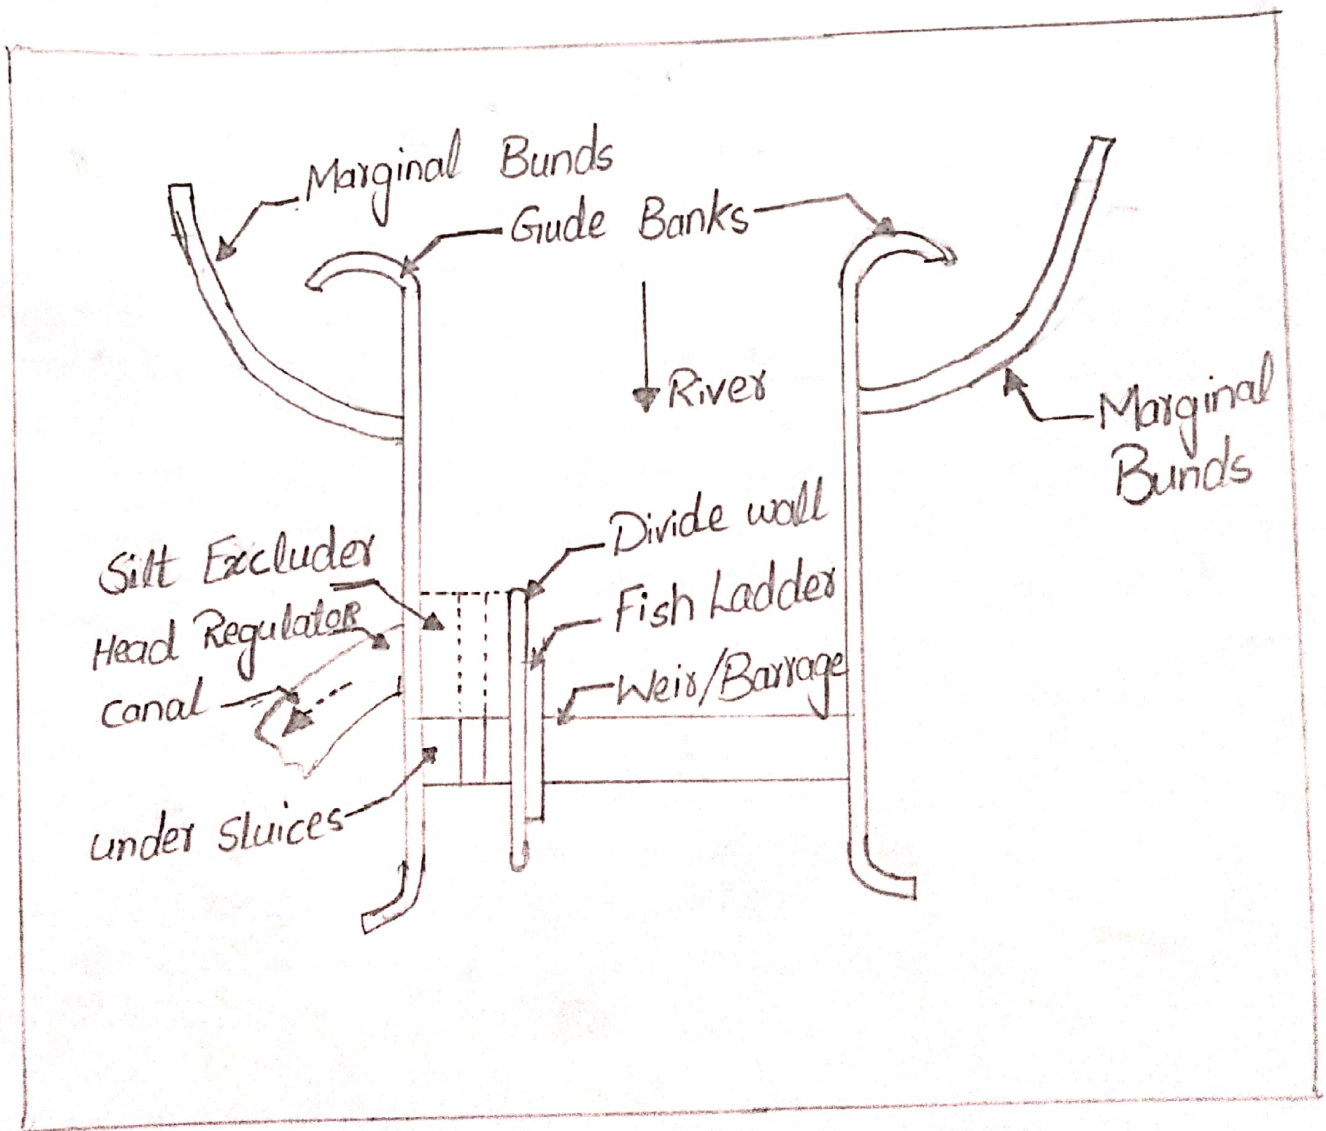 Marginal Bunds
Gude Banks
River
Marginal
Bunds
Divide wall
Silt Excluder
Fish Ladder
Head Regulator
Weir/Barrage
Canal
under sluices